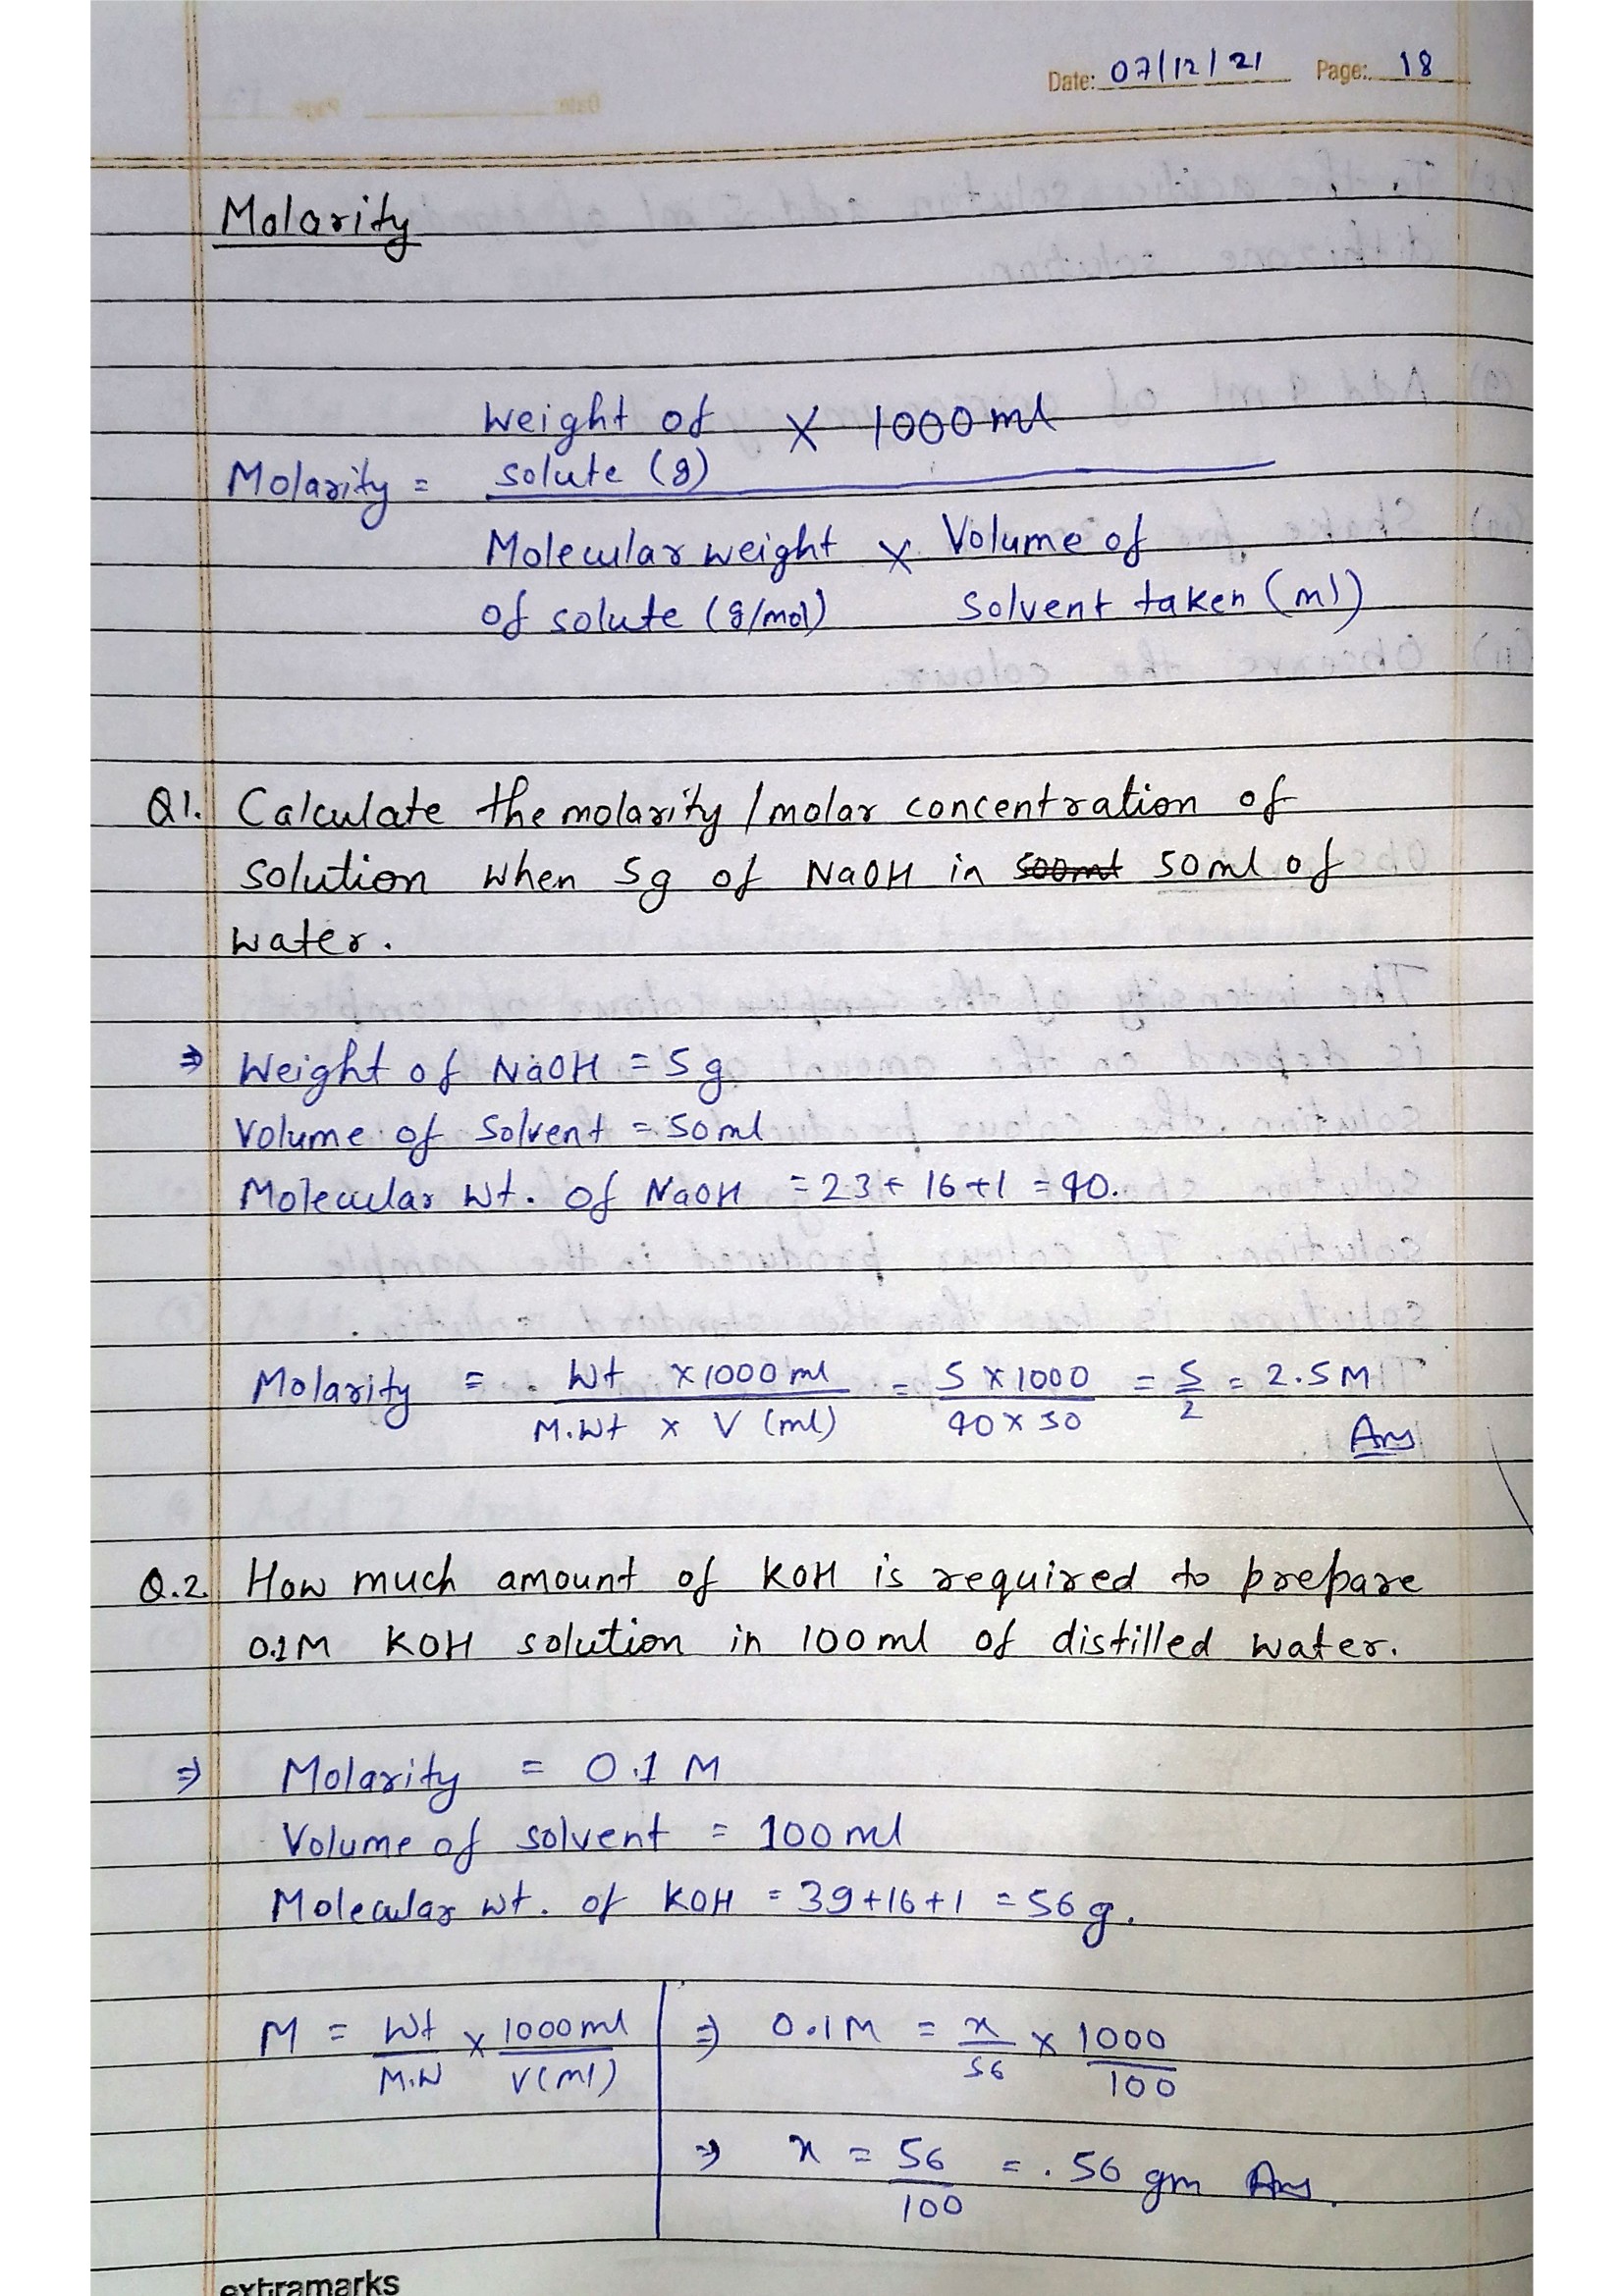 Date: 07/12/21 Page: 18
Molarity
Weight of × 1000 ml
solute (g)
Molarity =
Molecular weight × Volume of
of solute (g/mol) Solvent taken (ml)
Q1. Calculate the molarity / molar concentration of
solution when 5g of NaOH in 500ml 50ml of
water.
⇒ Weight of NaOH = 5g
Volume of Solvent = 50ml
Molecular wt. of NaOH = 23+16+1 = 40.
Molarity = Wt × 1000 ml / M.Wt × V (ml) = 5 × 1000 / 40 × 50 = 5/2 = 2.5 M
Ans
Q.2 How much amount of KOH is required to prepare
0.1M KOH solution in 100ml of distilled water.
⇒ Molarity = 0.1 M
Volume of solvent = 100 ml
Molecular wt. of KOH = 39+16+1 = 56g.
M = Wt/M.W × 1000ml/V(ml) ⇒ 0.1M = x/56 × 1000/100
⇒ x = 56/100 = .56 gm Ans.
extramarks